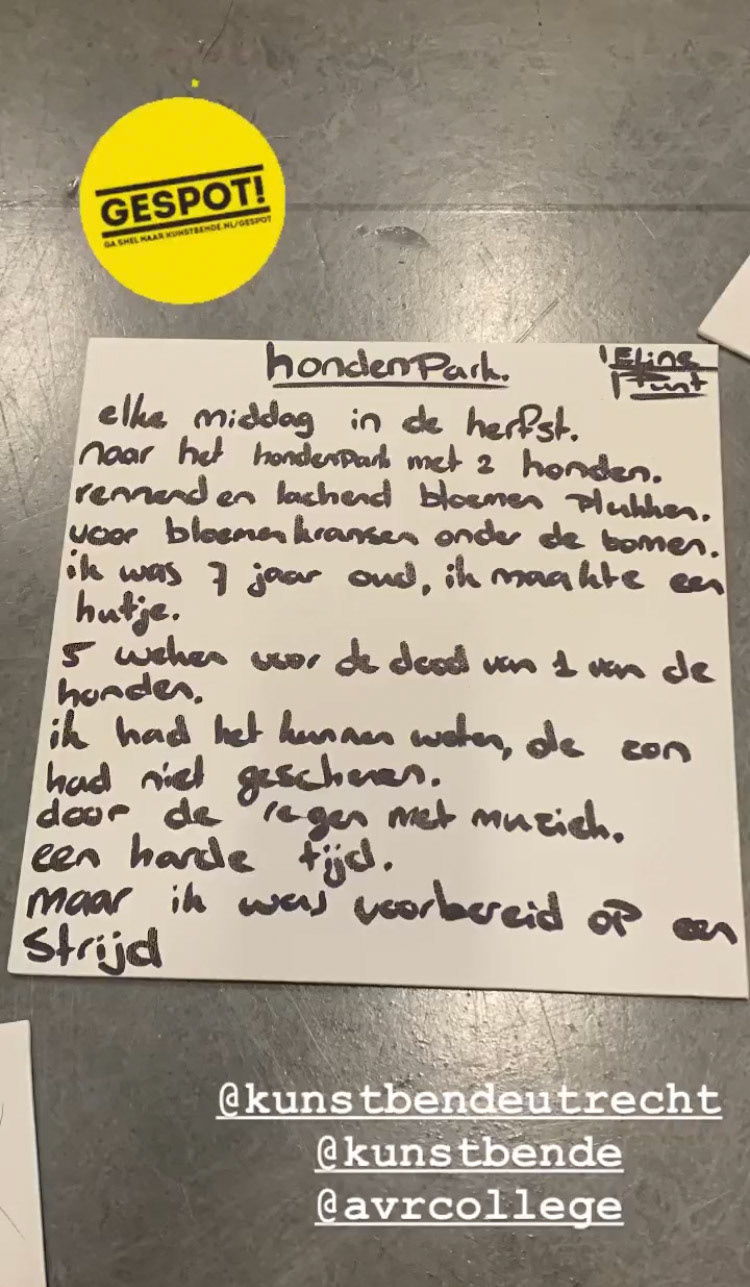 GESPOT!
GA SNEL NAAR KUNSTBENDE.NL/GESPOT
hondenPark.
Eline
elke middag in de herfst.
naar het hondenpark met 2 honden.
rennend en lachend bloemen plukken.
voor bloemenkransen onder de bomen.
ik was 7 jaar oud, ik maakte een
hutje.
5 weken voor de dood van 1 van de
honden.
ik had het kunnen weten, de zon
had niet geschenen.
door de regen met muziek.
een harde tijd.
maar ik was voorbereid op een
Strijd
@kunstbendeutrecht
@kunstbende
@avrcollege